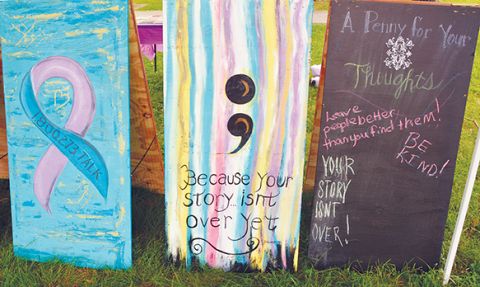 1·800·273·TALK
;
Because your
story isnt
over yet.
A Penny for Your
Thoughts
Leave
people better
than you find them!
BE
KIND!
YOUR
STORY
ISNT
OVER!